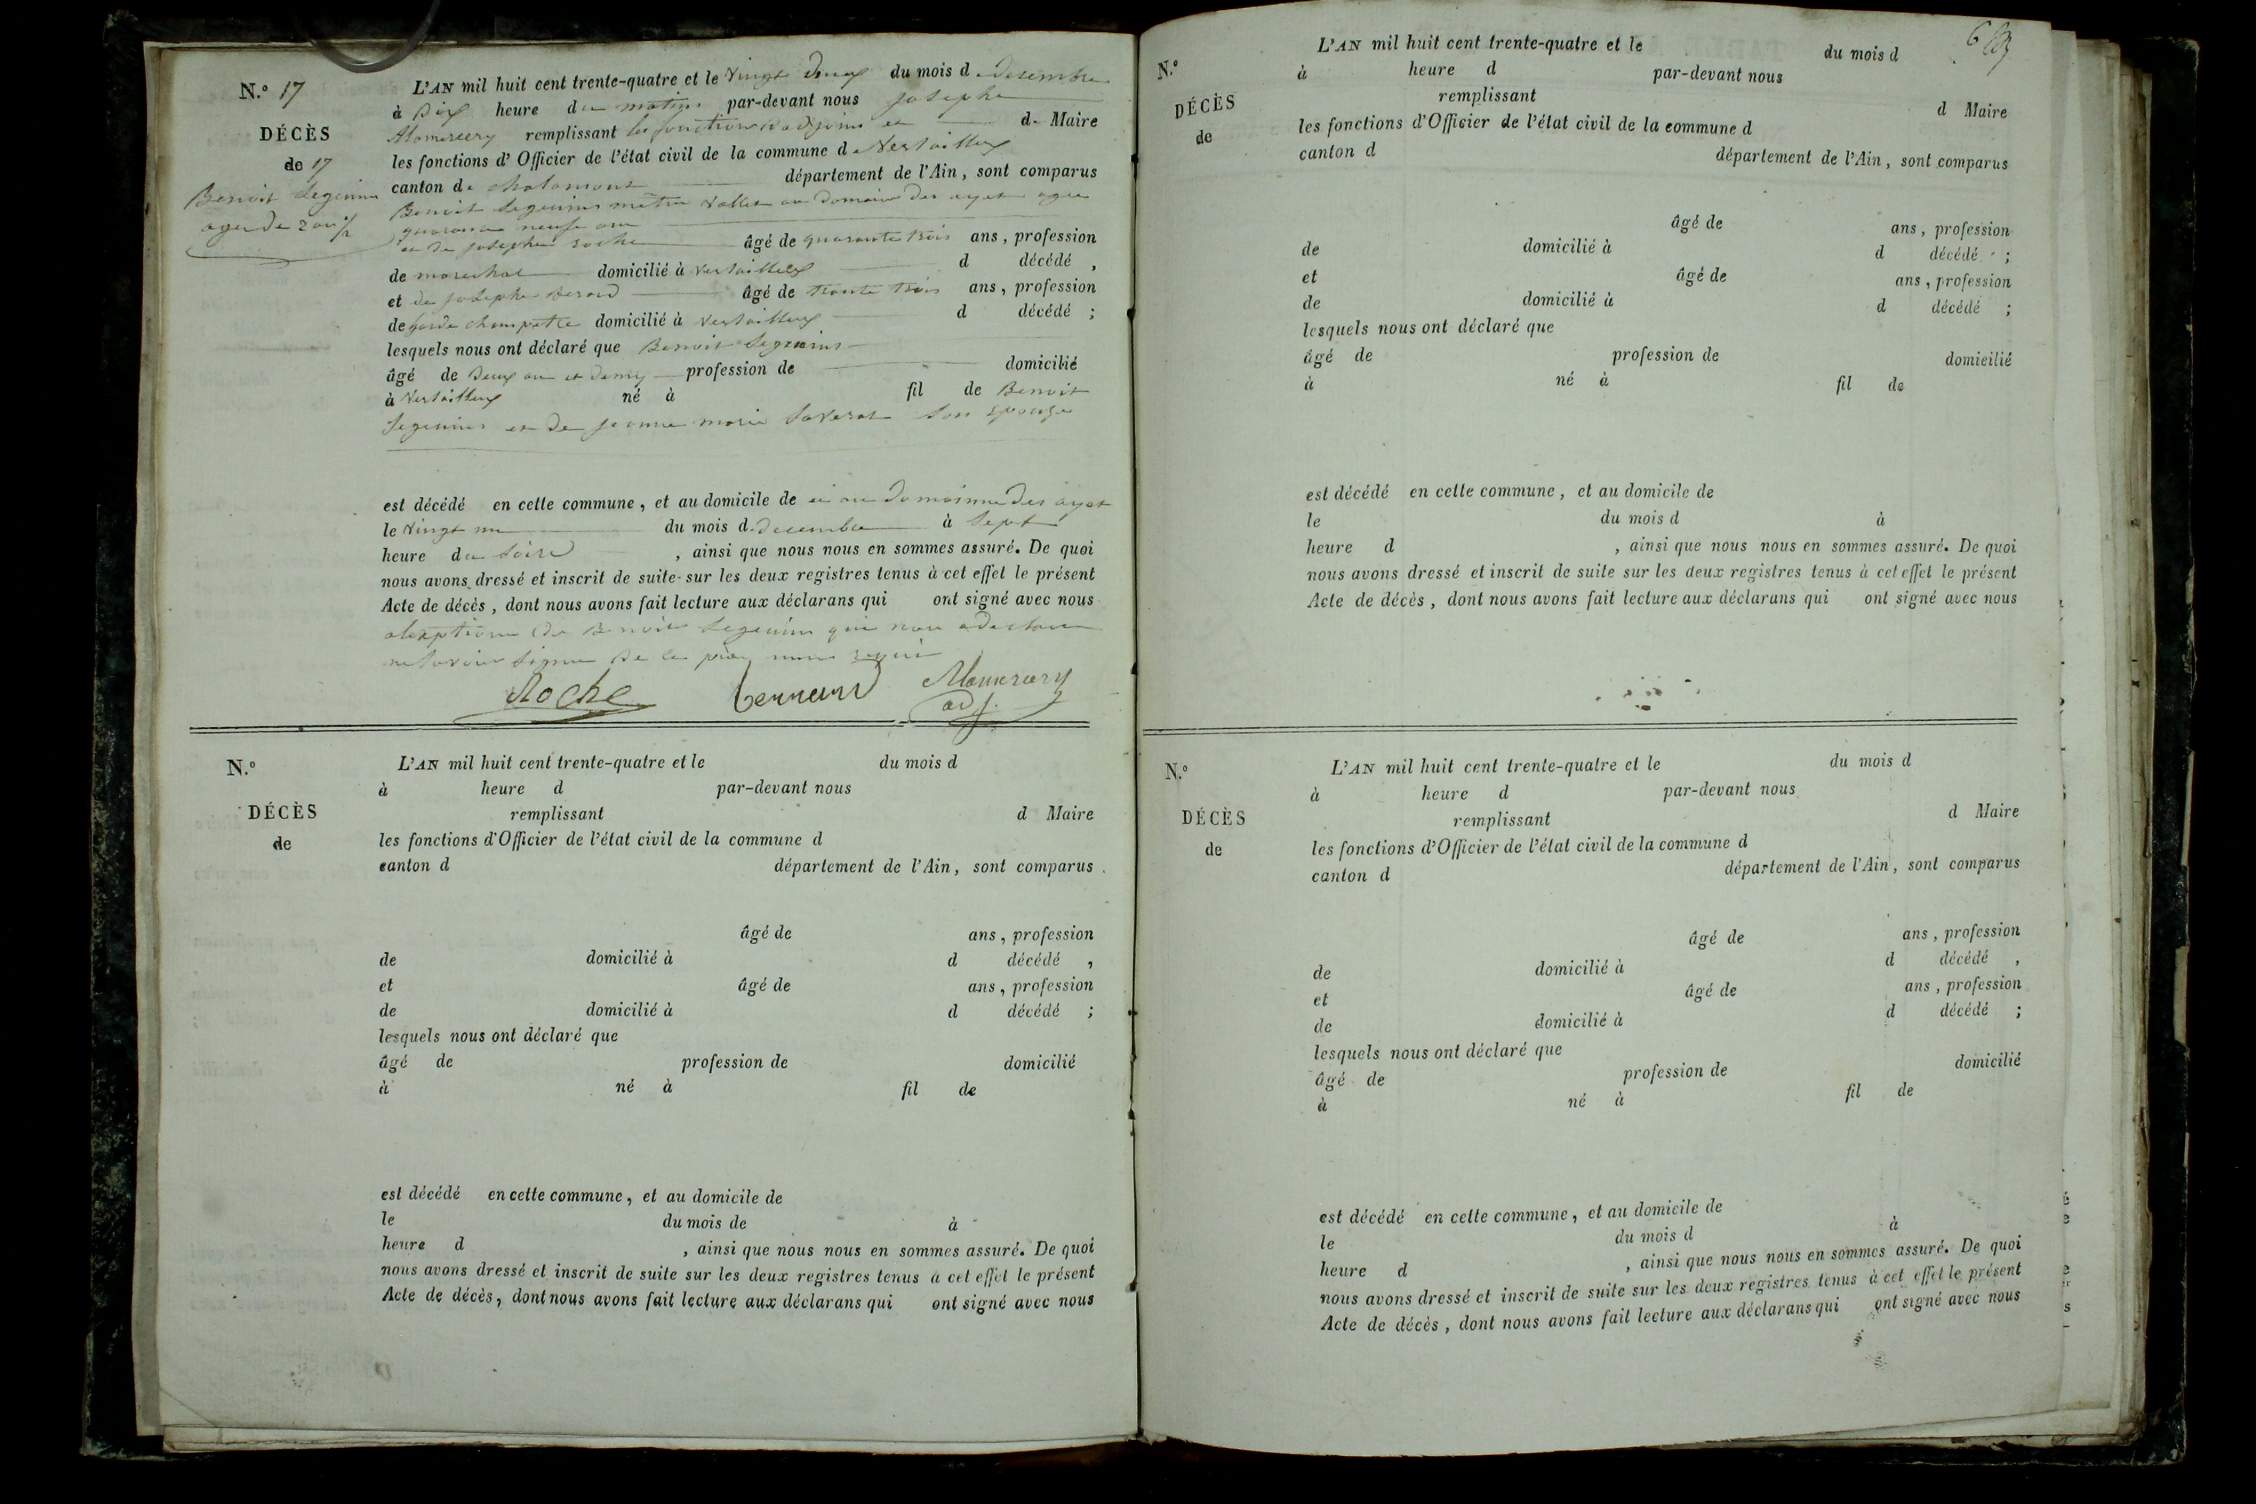 N.º 17
DÉCÈS
de 17
Benoit Seguin
age de 2 an ½
L'AN mil huit cent trente-quatre et le vingt deux du mois de desembre
à Dix heure du matin par-devant nous josephe
Monmercery remplissant les fonctions d'adjoint et d. Maire
les fonctions d'Officier de l'état civil de la commune de Versailleux
canton de chalamont département de l'Ain, sont comparus
Benoit Seguin mètre vallet au domaine des ayet agée
quarante neufe an
et de josephe roche âgé de quarante trois ans, profession
de marechal domicilié à versailleux d décédé ,
et de josephe Berard âgé de trante trois ans, profession
de garde champatre domicilié à versailleux d décédé ;
lesquels nous ont déclaré que Benoit Seguin
âgé de Deux an et demy profession de domicilié
à versailleux né à fil de Benoit
Seguin et de jeanne marie Saverat son Epouze
est décédé en cette commune, et au domicile de au domainne des ayet
le vingt un du mois de decembre à Sept
heure du soire , ainsi que nous nous en sommes assuré. De quoi
nous avons dressé et inscrit de suite sur les deux registres tenus à cet effet le présent
Acte de décès, dont nous avons fait lecture aux déclarans qui ont signé avec nous
alexption de Benoit Seguin qui nou a declare
ne savoir signe de ce
Roche Bernard adj.
N.º
DÉCÈS
de
L'AN mil huit cent trente-quatre et le du mois d
à heure d par-devant nous
remplissant d Maire
les fonctions d'Officier de l'état civil de la commune d
canton d département de l'Ain, sont comparus
âgé de ans, profession
de domicilié à d décédé ,
et âgé de ans, profession
de domicilié à d décédé ;
lesquels nous ont déclaré que
âgé de profession de domicilié
à né à fil de
est décédé en cette commune, et au domicile de
le du mois de à
heure d , ainsi que nous nous en sommes assuré. De quoi
nous avons dressé et inscrit de suite sur les deux registres tenus à cet effet le présent
Acte de décès, dont nous avons fait lecture aux déclarans qui ont signé avec nous
N.º
DÉCÈS
de
L'AN mil huit cent trente-quatre et le du mois d
à heure d par-devant nous
remplissant d Maire
les fonctions d'Officier de l'état civil de la commune d
canton d département de l'Ain, sont comparus
âgé de ans, profession
de domicilié à d décédé ;
et âgé de ans, profession
de domicilié à d décédé ;
lesquels nous ont déclaré que
âgé de profession de domicilié
à né à fil de
est décédé en cette commune, et au domicile de
le du mois d à
heure d , ainsi que nous nous en sommes assuré. De quoi
nous avons dressé et inscrit de suite sur les deux registres tenus à cet effet le présent
Acte de décès, dont nous avons fait lecture aux déclarans qui ont signé avec nous
N.º
DÉCÈS
de
L'AN mil huit cent trente-quatre et le du mois d
à heure d par-devant nous
remplissant d Maire
les fonctions d'Officier de l'état civil de la commune d
canton d département de l'Ain, sont comparus
âgé de ans, profession
de domicilié à d décédé ,
et âgé de ans, profession
de domicilié à d décédé ;
lesquels nous ont déclaré que
âgé de profession de domicilié
à né à fil de
est décédé en cette commune, et au domicile de
le du mois d à
heure d , ainsi que nous nous en sommes assuré. De quoi
nous avons dressé et inscrit de suite sur les deux registres tenus à cet effet le présent
Acte de décès, dont nous avons fait lecture aux déclarans qui ont signé avec nous